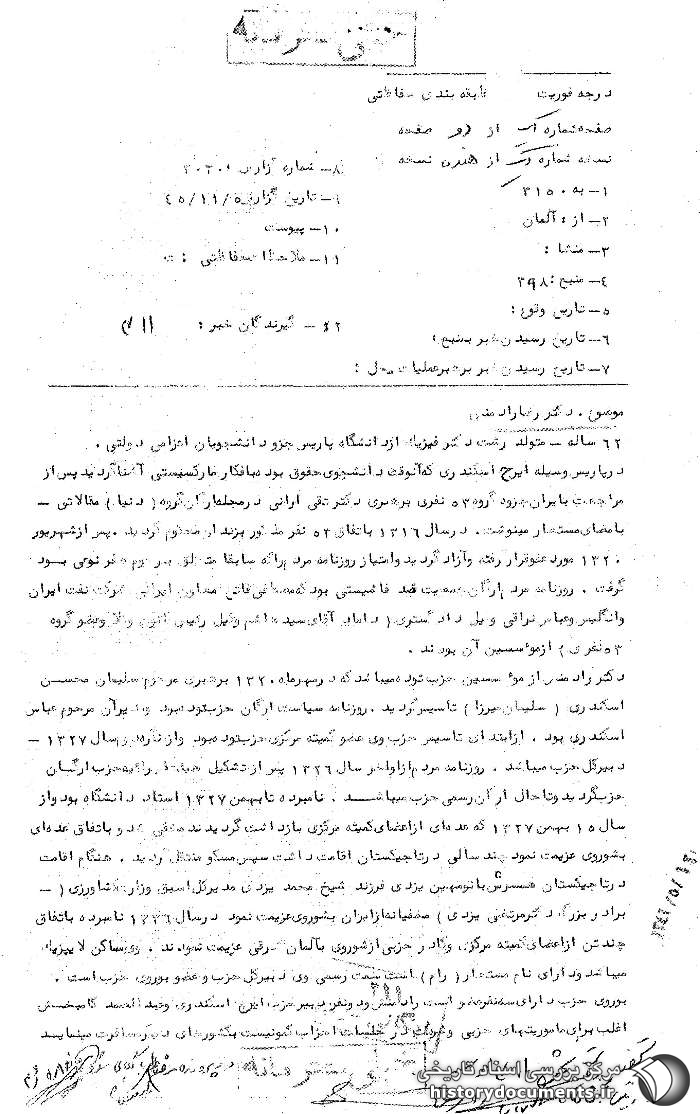 خیلی محرمانه
درجه فوریت طبقه بندی حفاظتی
صفحه شماره یک از دو صفحه
نسخه شماره یک از نسخه
۱- به ۳۱۵۰
۲- از : آلمان
۳- منشا :
۴- منبع : ۳۹۸
۵- تاریخ وقوع :
۶- تاریخ رسیدن خبر بمنبع :
۷- تاریخ رسیدن خبر برهبر عملیات محل :
۸- شماره گزارش
۹- تاریخ گزارش ۴۵/۱۱/
۱۰- پیوست
۱۱- ملاحظات حفاظتی :
۱۲- گیرندگان خبر :
موضوع . دکتر رضا رادمنش
۶۲ ساله - متولد رشت دکتر فیزیک از دانشگاه پاریس جزو دانشجویان اعزامی دولتی .
در پاریس وسیله ایرج اسکندری که آنوقت دانشجوی حقوق بود بافکار مارکسیستی آشنا گردید پس از
مراجعت بایران جزو گروه ۵۳ نفری برهبری دکتر تقی ارانی در مجله ارگان گروه ( دنیا ) مقالاتی -
بامضای مستعار مینوشت . در سال ۱۳۱۶ باتفاق ۵۳ نفر مذکور بزندان محکوم گردید . پس از شهریور
۱۳۲۰ مورد عفو قرار رفته و آزاد گردید و امتیاز روزنامه مردم را که سابقا متعلق به مرحوم صفر نوعی بود
گرفت . روزنامه مردم ارگان جمعیت ضد فاشیستی بود که مصطفی فاتح معاون ایرانی شرکت نفت ایران
و انگلیس و عباس نراقی وکیل دادگستری ( داماد آقای سید هاشم وکیل رئیس کانون وکلا و عضو گروه
۵۳ نفری ) از موسسین آن بودند .
دکتر رادمنش از موسسین حزب توده میباشد که در مهرماه ۱۳۲۰ برهبری مرحوم سلیمان محسن
اسکندری ( سلیمان میرزا ) تاسیس گردید . روزنامه سیاست ارگان حزب توده بود و مدیر آن مرحوم عباس
اسکندری بود . از ابتدای تاسیس حزب وی عضو کمیته مرکزی حزب توده بود و از سال ۱۳۲۷ -
دبیر کل حزب میباشد . روزنامه مردم از اواخر سال ۱۳۲۶ پس از تشکیل حزب ارگان
حزب گردید و تا حال ارگان رسمی حزب میباشد . نامبرده تا بهمن ۱۳۲۷ استاد دانشگاه بود و از
سال ۱۵ بهمن ۱۳۲۷ که عده ای از اعضای کمیته مرکزی بازداشت گردیدند مخفی شد و باتفاق عده ای
بشوروی عزیمت نمود چند سالی در تاجیکستان اقامت داشت سپس بمسکو منتقل گردید . هنگام اقامت
در تاجیکستان همسرش بانو مهین یزدی فرزند شیخ محمد یزدی مدیر کل اسبق وزارت کشاورزی ( -
برادر بزرگ دکتر مرتضی یزدی ) مخفیانه از ایران بشوروی عزیمت نمود در سال ۱۳۳۶ نامبرده باتفاق
چند تن از اعضای کمیته مرکزی و کادر حزبی از شوروی بآلمان شرقی عزیمت نمودند . وی ساکن لایپزیک
میباشد و دارای نام مستعار ( رام ) است سمت رسمی وی دبیر کل حزب و عضو بوروی حزب است .
بوروی حزب دارای سه نفر عضو است رادمنش و دو نفر دبیر حزب ایرج اسکندری و عبدالصمد کامبخش
اغلب برای ماموریتهای حزبی و شرکت در جلسات احزاب کمونیست بکشورهای دیگر مسافرت مینماید
خیلی محرمانه
مرکز بررسی اسناد تاریخی
historydocuments.ir